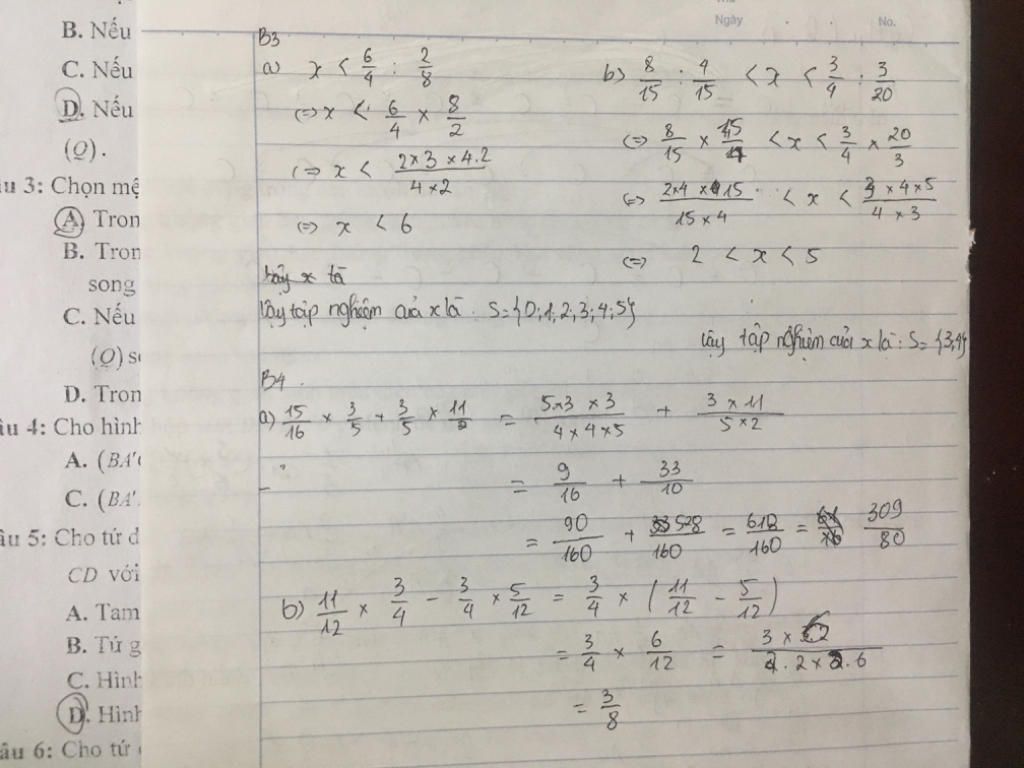 Ngày No.
B. Nếu
C. Nếu
D. Nếu
(Q).
u 3: Chọn mệ
A. Tron
B. Tron
song
C. Nếu
(Q) s
D. Tron
âu 4: Cho hình
A. (BA'
C. (BA'.
âu 5: Cho tứ d
CD với
A. Tam
B. Tứ g
C. Hình
D. Hình
âu 6: Cho tứ
B3
a) x < 6/4 : 2/8
(=) x < 6/4 × 8/2
(=) x < (2×3×4.2)/(4×2)
(=) x < 6
Vậy x là
Vậy tập nghiệm của x là : S={0;1;2;3;4;5}
b) 8/15 : 4/15 < x < 3/4 : 3/20
(=) 8/15 × 15/4 < x < 3/4 × 20/3
(=) (2×4×15)/(15×4) < x < (3×4×5)/(4×3)
(=) 2 < x < 5
Vậy tập nghiệm của x là : S= {3,4}
B4.
a) 15/16 × 3/5 + 3/5 × 11/2 = (5×3×3)/(4×4×5) + (3×11)/(5×2)
= 9/16 + 33/10
= 90/160 + 528/160 = 618/160 = 309/80
b) 11/12 × 3/4 − 3/4 × 5/12 = 3/4 × (11/12 − 5/12)
= 3/4 × 6/12 = (3×6)/(4.2×6)
= 3/8